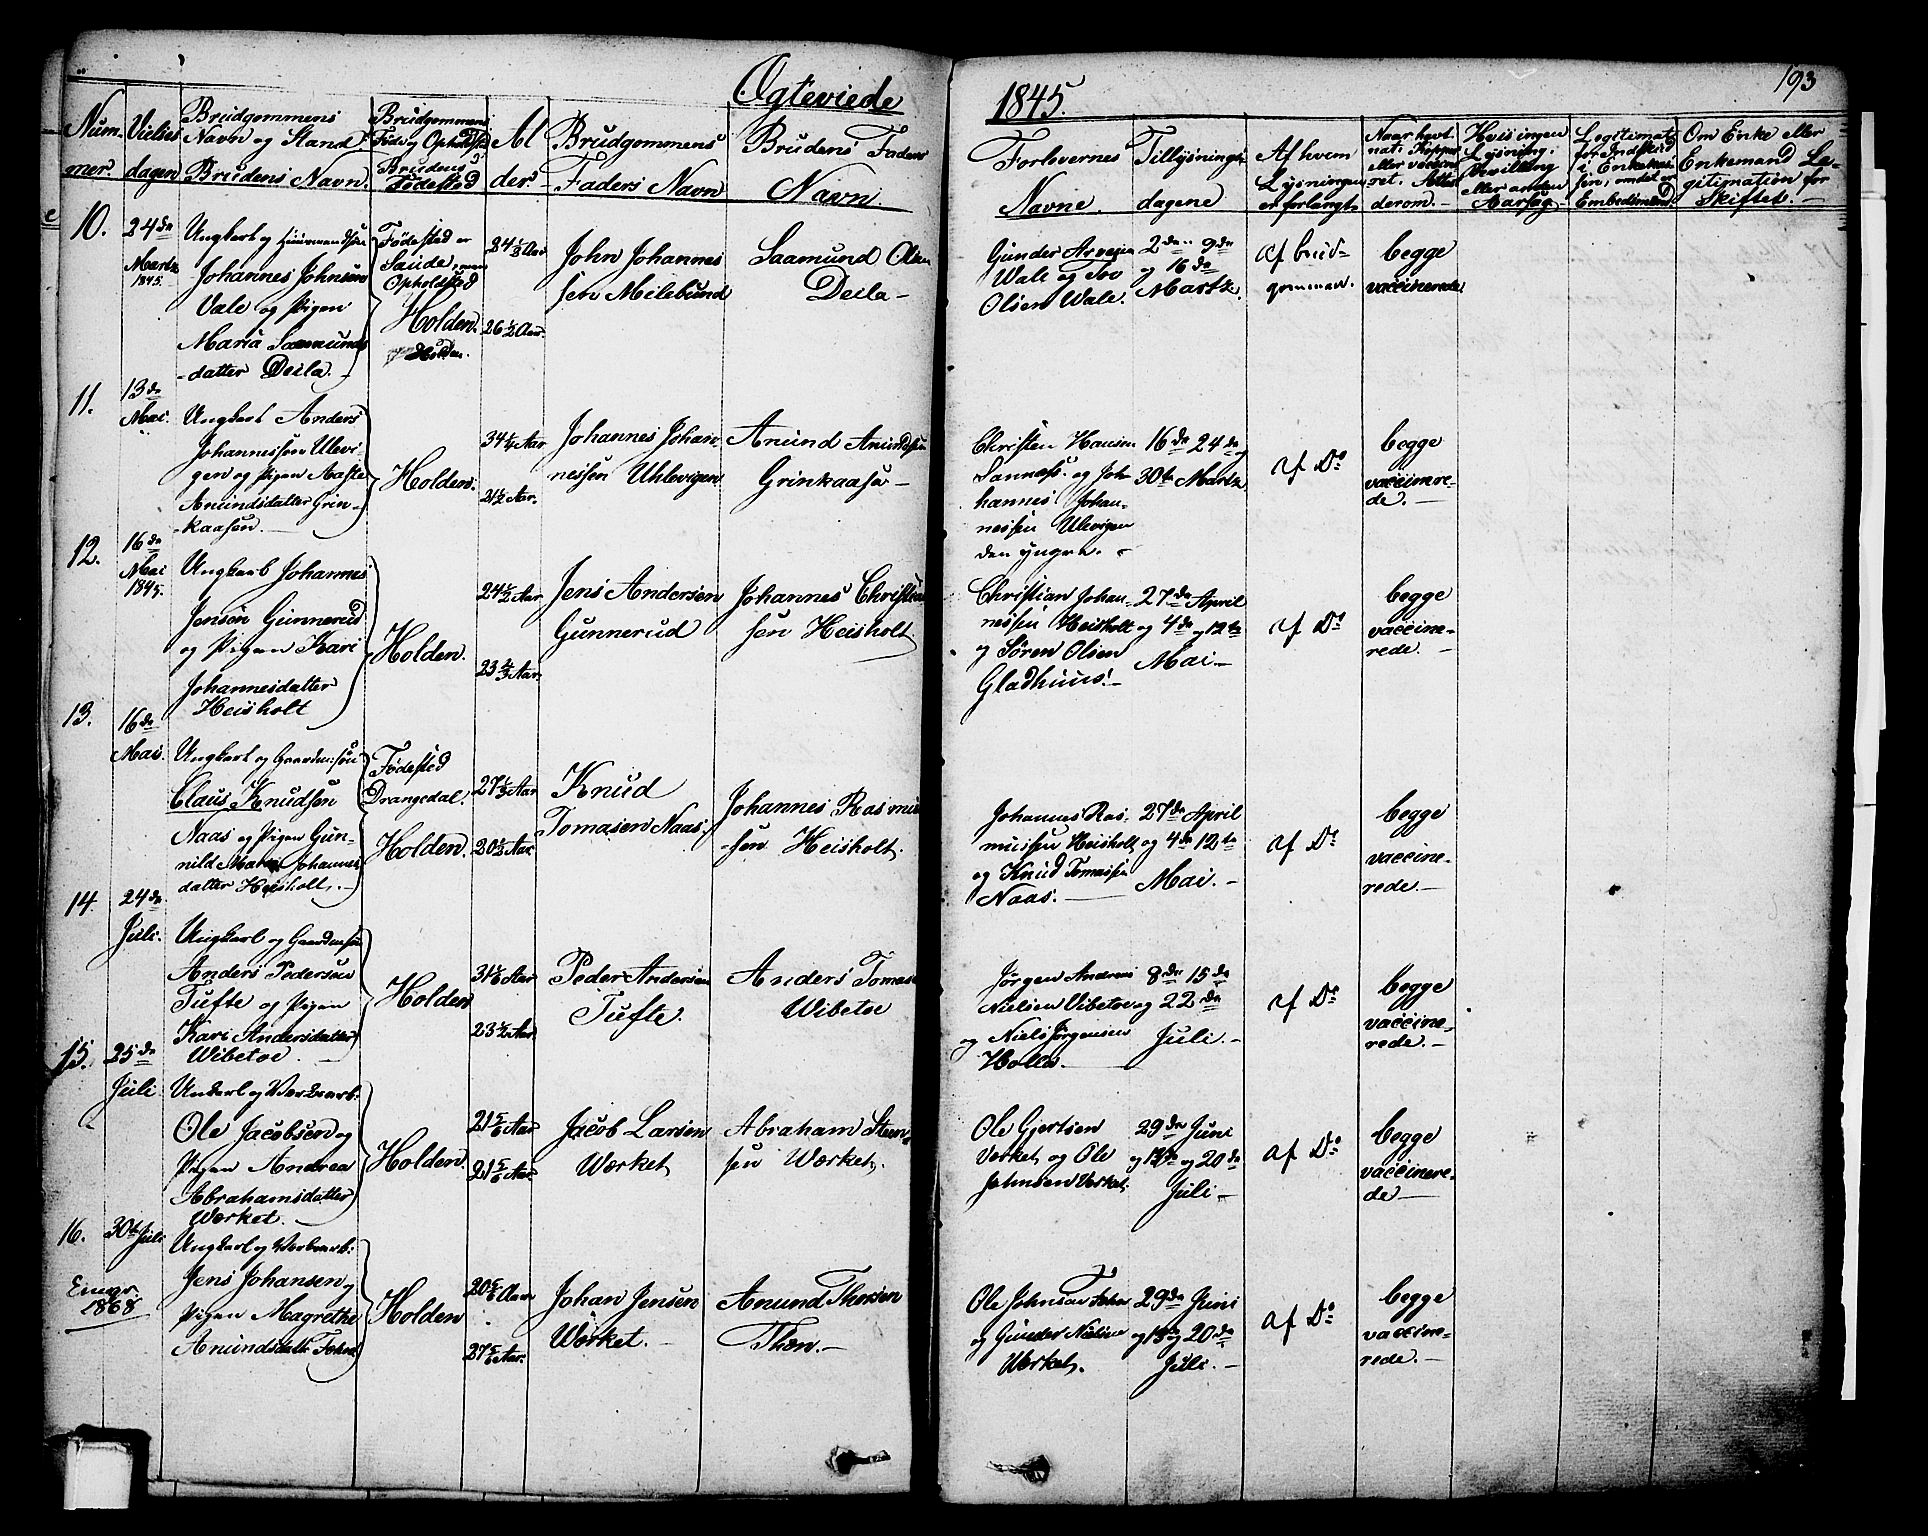 Ogteviede
1845.
193
Num-
mer.
Vielses
dagen
Brudgommens
Navn og Stand
Brudens Navn.
Brudgommens
Føde og Opholdsted
Brudens
Fødested
Al
der.
Brudgommens
Faders Navn
Brudens Faders
Navn.
Forlovernes
Navne.
Tillysnings-
dagene
Af hvem
Lysningen
er forlangt.
Naar havt
nat: Kopper
eller vaccine
ret, Attest
derom.
Hvis ingen
Lysning;
Bevilling
eller anden
Aarsag
Legitimat:
for Indskud
i Enkekas-
sen, om det er
Embedsmand
Om Enke eller
Enkemand Le-
gitimation for
Skiftet.
10.
24de
Martz
1845.
Ungkarl og Huusmandssøn
Johannes Johnsen
Vale og Pigen
Maria Saamunds
datter Deila.
Fødested er
Saude, men
Opholdsted
Holden.
Holden.
24½ Aar
26½ Aar.
John Johannes
sen Milebund
Saamund Olsen
Deila
Gunder Aavesen
Wale og Tov
Olsen Wale.
2den 9de
og 16de
Martz.
af brud-
gommen.
begge
vaccinerede.
11.
13de
Mai.
Ungkarl Anders
Johannessen Ulevi-
gen og Pigen Aaste
Amundsdatter Grin-
kaasen.
Holden.
34¼ Aar
21½ Aar.
Johannes Johan-
nessen Uhlevigen
Amund Amundsen
Grinkaasen
Christen Hansen
Sannæss. og Joh-
hannes Johan-
nessen Ulevigen
den yngre.
16de 24de og
30te Martz
af Do
begge
vaccinere-
de.
12.
16de
Mai
1845.
Ungkarl Johannes
Jensen Gunnerud
og Pigen Kari
Johannesdatter
Heisholt
Holden.
24½ Aar
23⅔ Aar.
Jens Andersen
Gunnerud
Johannes Christian
sen Heisholt
Christian Johan-
nessen Heisholt
og Søren Olsen
Gladhuus.
27de April
og 4de og 12te
Mai
af Do
begge
vaccine-
rede.
13.
16de
Mai.
Ungkarl og Gaardm:søn
Claus Knudsen
Naas og Pigen Gun-
nild Johannes
datter Heisholt.
Fødested
Drangedal.
Holden.
27⅓ Aar
20½ Aar.
Knud
Tomasen Naas.
Johannes Rasmus
sen Heisholt.
Johannes Ras-
mussen Heisholt
og Knud Tomassen
Naas.
27de April
og 4de 12te
Mai.
af Do
begge
vaccine-
rede.
14.
24de
Juli.
Ungkarl og Gaardm:søn
Anders Pedersen
Tufte og Pigen
Kari Andersdatter
Wibetoe.
Holden
31⅙ Aar
23½ Aar
Peder Andersen
Tufte.
Anders Tomas
Wibetoe
Jørgen Andreas
Nielsen Vibetoe
og Niels Jørgensen
Holla.
8de 15de
og 22de
Juli.
af Do
begge
vaccine-
rede.
15.
25de
Juli
Unkarl og Værksarb:
Ole Jacobsen og
Pigen Andrea
Abrahamsdatter
Værket.
Holden.
21⅚ Aar
21⅚ Aar
Jacob Larsen
Værket
Abraham Steen-
sen Værket.
Ole Gjertsen
Verket og Ole
Johnsen Verket
29de Juni
og 13de og 20de
Juli
af Do
begge
vaccinere-
de
16.
30te Juli
Emgr.
1868
Ungkarl og Verksarb:
Jens Johansen og
Pigen Magrethe
Amundsdatt:
Holden
20⅚ Aar
27⅚ Aar.
Johan Jensen
Værket.
Amund Thorsen
Thon.
Ole Johnsen
og Gunder Nielsen
Værket.
29de Juni
og 13de og 20de
Juli.
af Do
begge
vaccine-
rede.